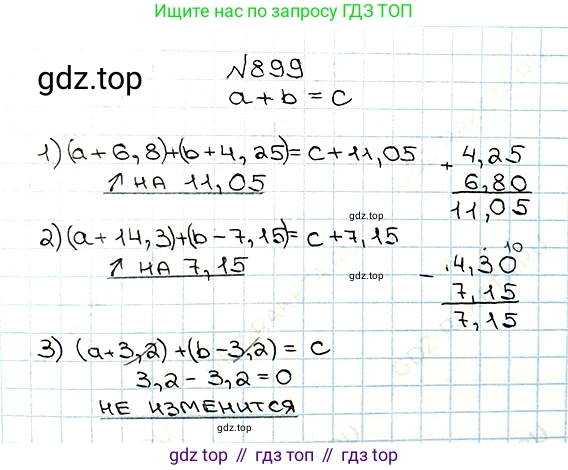 Ищите нас по запросу ГДЗ ТОП
gdz.top
№899
a + b = c
1) (a + 6,8)+(b + 4,25)= c + 11,05
↑ НА 11,05
+ 4,25
6,80
11,05
gdz.top
2) (a + 14,3)+(b - 7,15)= c + 7,15
↑ НА 7,15
10
- 14,30
7,15
7,15
3) (a+3,2) +(b-3,2) = c
3,2 - 3,2 = 0
НЕ ИЗМЕНИТСЯ
gdz.top
gdz.top // гдз топ // гдз top